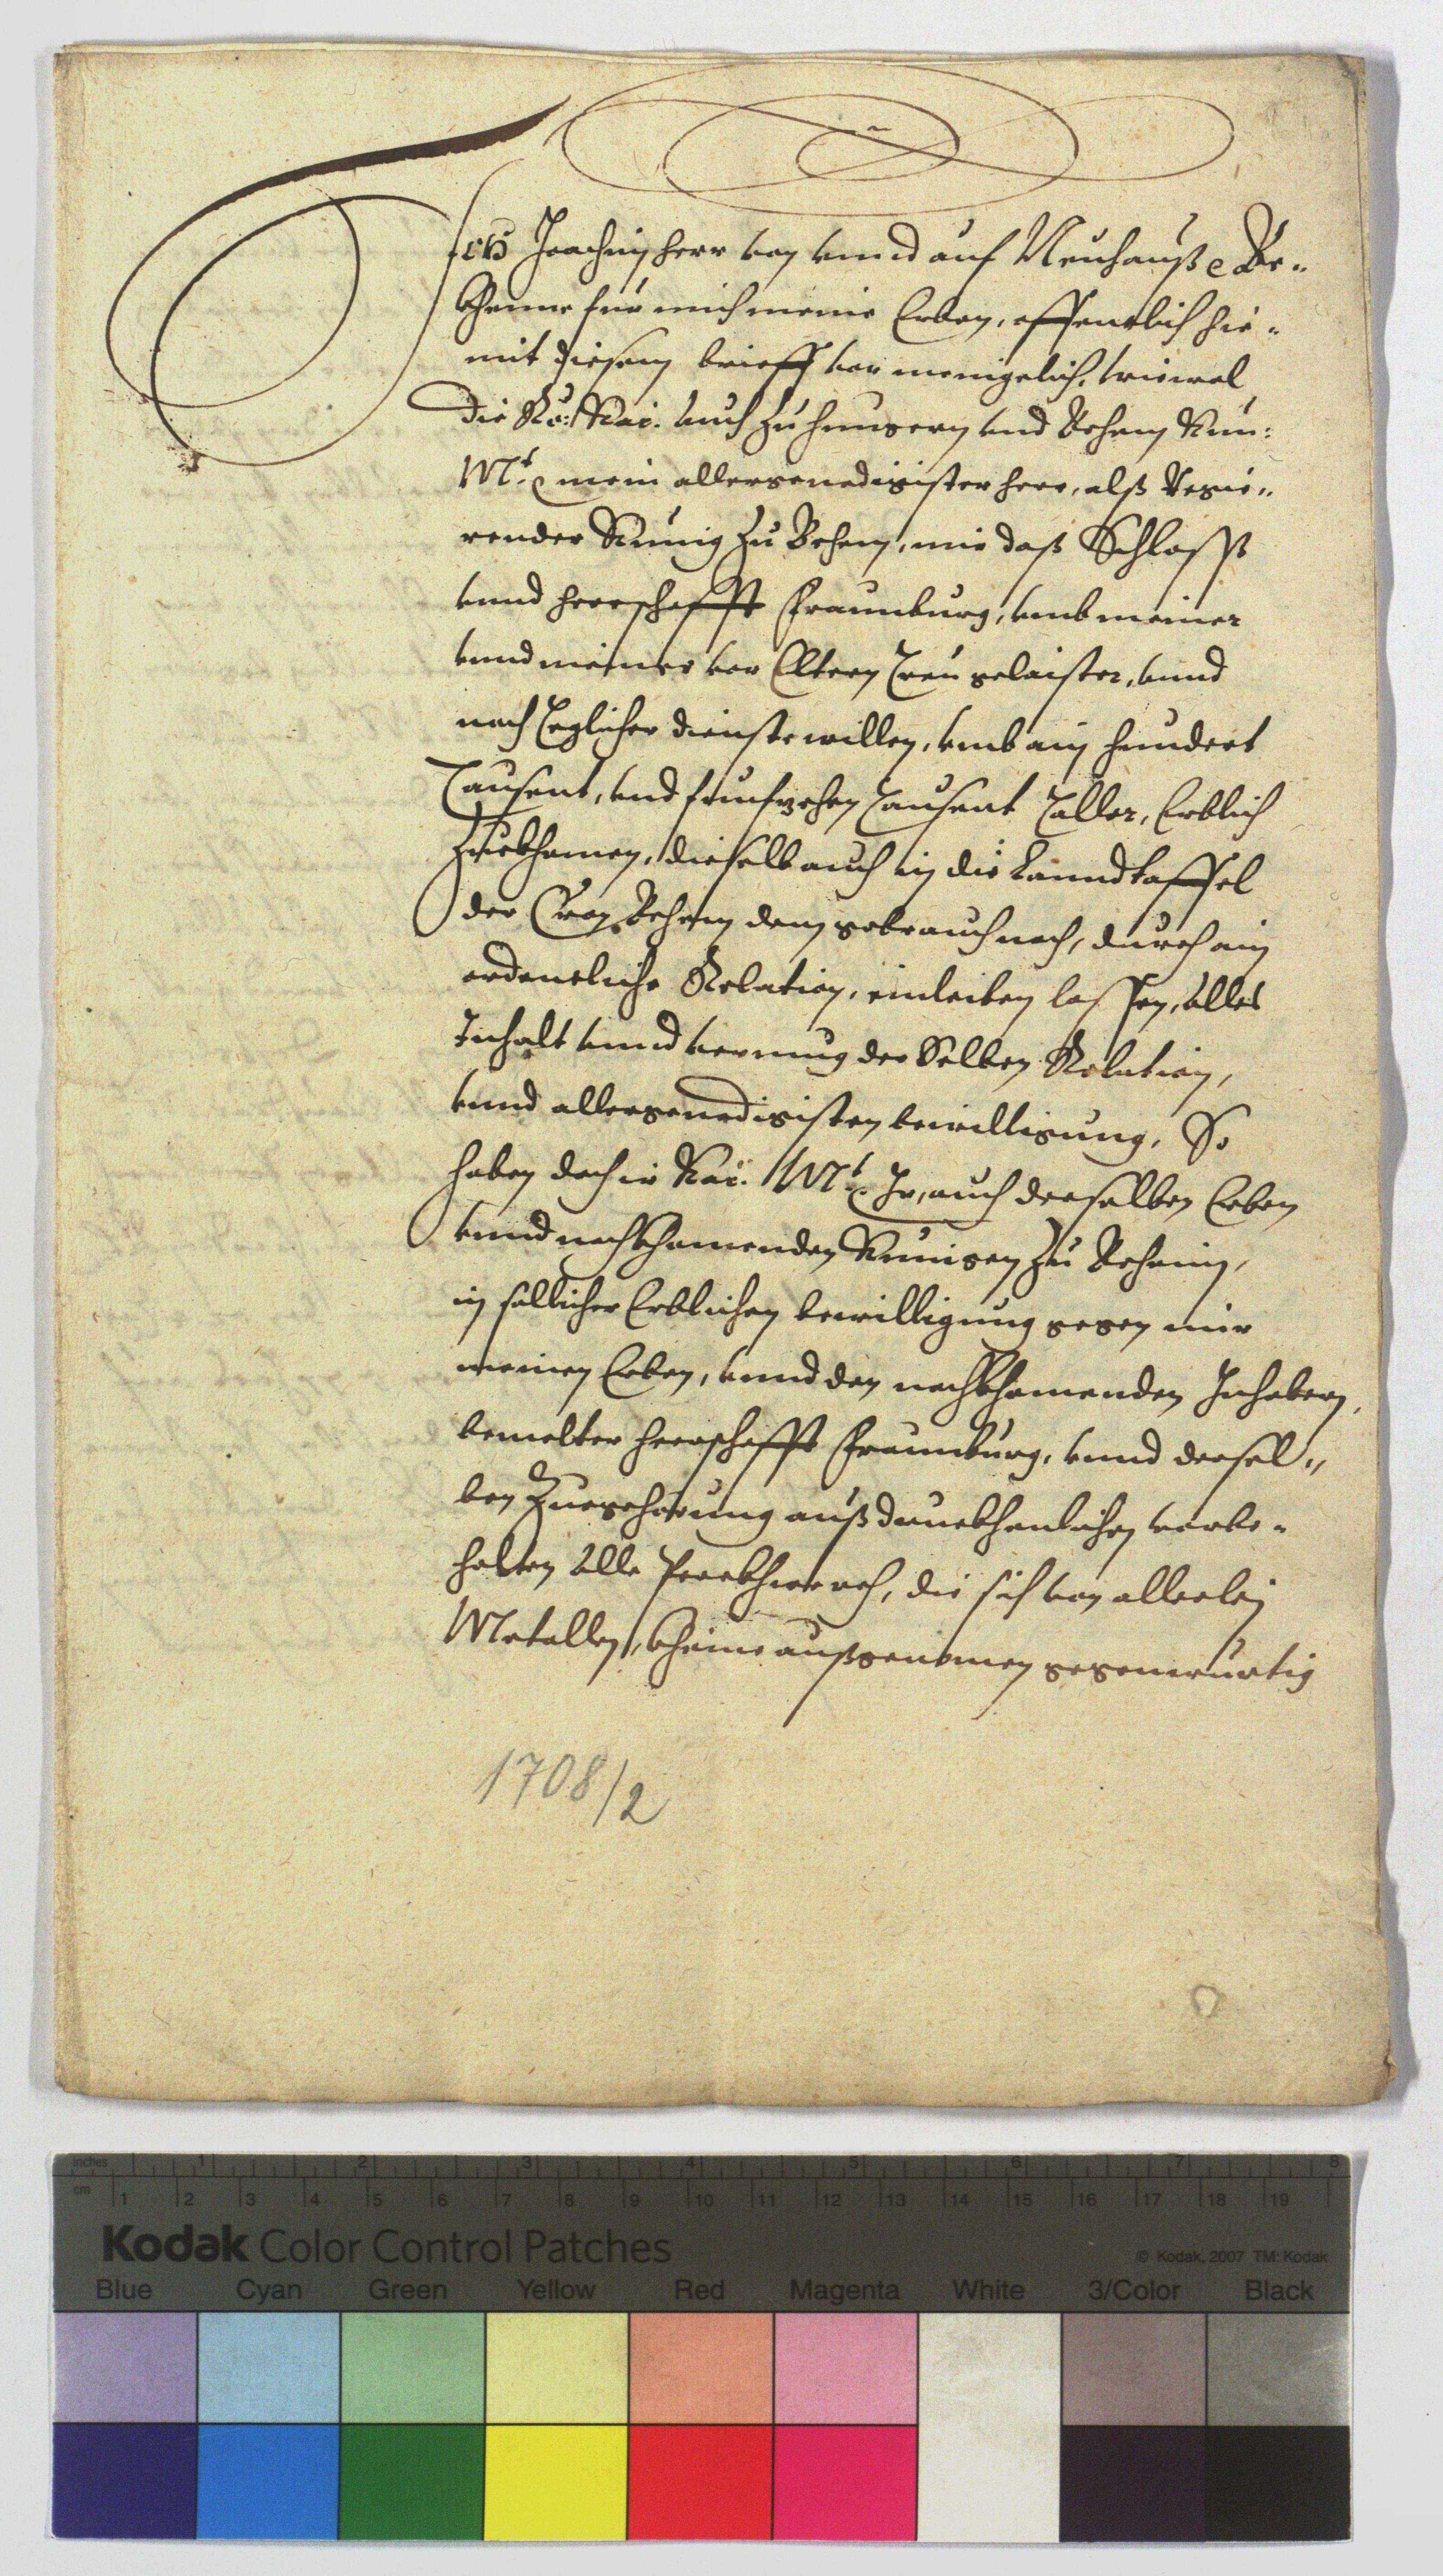 Ich Joachim herr von vnnd auf Neuhauß Be-
khenne für mich meine Erben, offentlich hie-
mit diesem brieff vor menigelich, wiewol
die Rö: Kai: auch zu hungern vnd Behem Kün:
Mt: mein allergenedigister herr, alß Regie-
render Künig zu Behem, mir daß Schloss
vnnd herrschafft Fraunburg, vmb meiner
vnnd meiner vor Eltern Treu gelaister, vnnd
nach Teglicher dienste willen, vmb ain hundert
Tausent, vnd funfzehen Tausent Taller, Erblich
Zuekhomen, dieselb auch in die Lanndtaffel
der Cron Behem dem gebrauch nach, durch ain
ordentliche Relation, einleiben lassen, alles
Inhalt vnnd vermug der Selben Relation,
vnnd allergenedigisten bewilligung, So
haben doch ir Kai: Mt: Ir, auch derselben Erben
vnnd nachkhomenden Künigen zu Behaim,
in sollicher Erblichen bewilligung gegen mir
meinen Erben, vnnd den nachkhomenden Inhabern,
bemelter herrschafft Fraunburg, vnnd dersel-
ben Zuegehörung außdruckhenlichen vorbe-
halten Alle Perckhwerch, die sich von allerlej
Metallen, kheine außgenomen gegenwürtig
1708/2
inches 1 2 3 4 5 6 7 8
cm 1 2 3 4 5 6 7 8 9 10 11 12 13 14 15 16 17 18 19
Kodak Color Control Patches
© Kodak, 2007 TM: Kodak
Blue Cyan Green Yellow Red Magenta White 3/Color Black